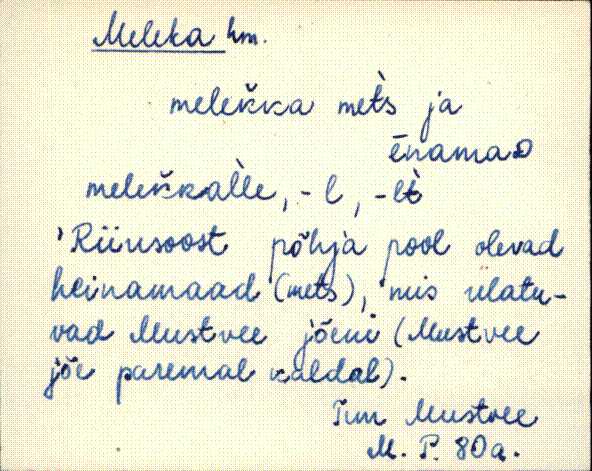 Meleka hm.
melekka mets ja
ēnamaᴅ
melekkalle, -l, -lt
'Riinsoost põhja pool olevad
heinamaad (mets), mis ulatu-
vad Mustvee jõeni (Mustvee
jõe paremal kaldal).
Mustvee
M. P. 80a.